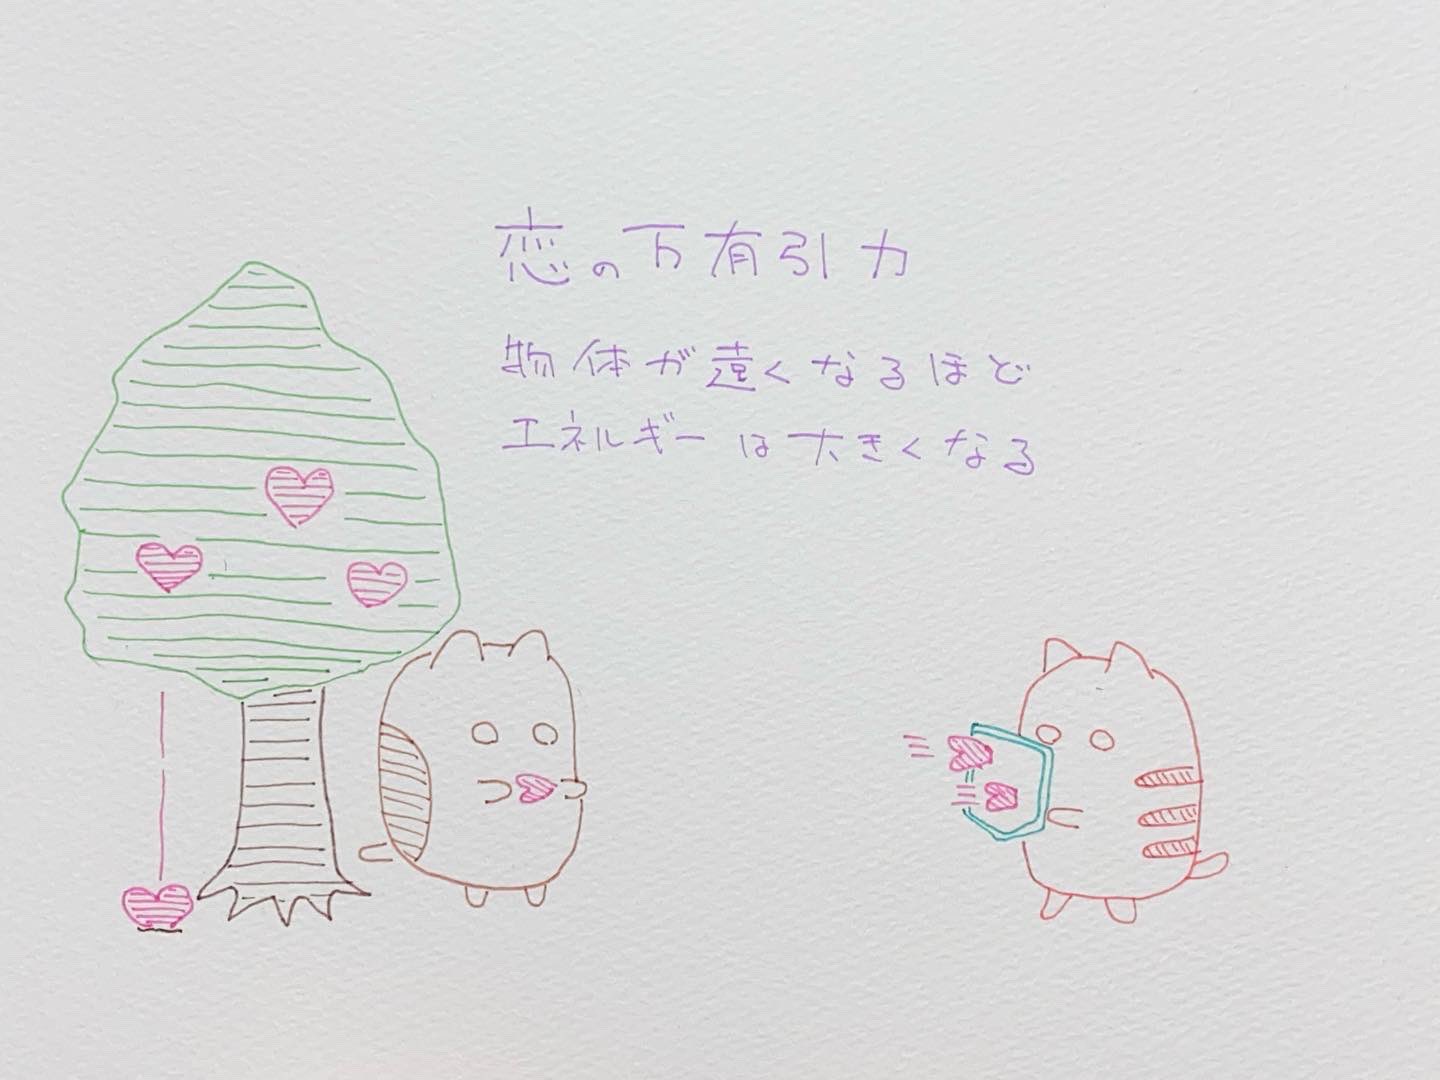 恋の万有引力
物体が遠くなるほど
エネルギーは大きくなる